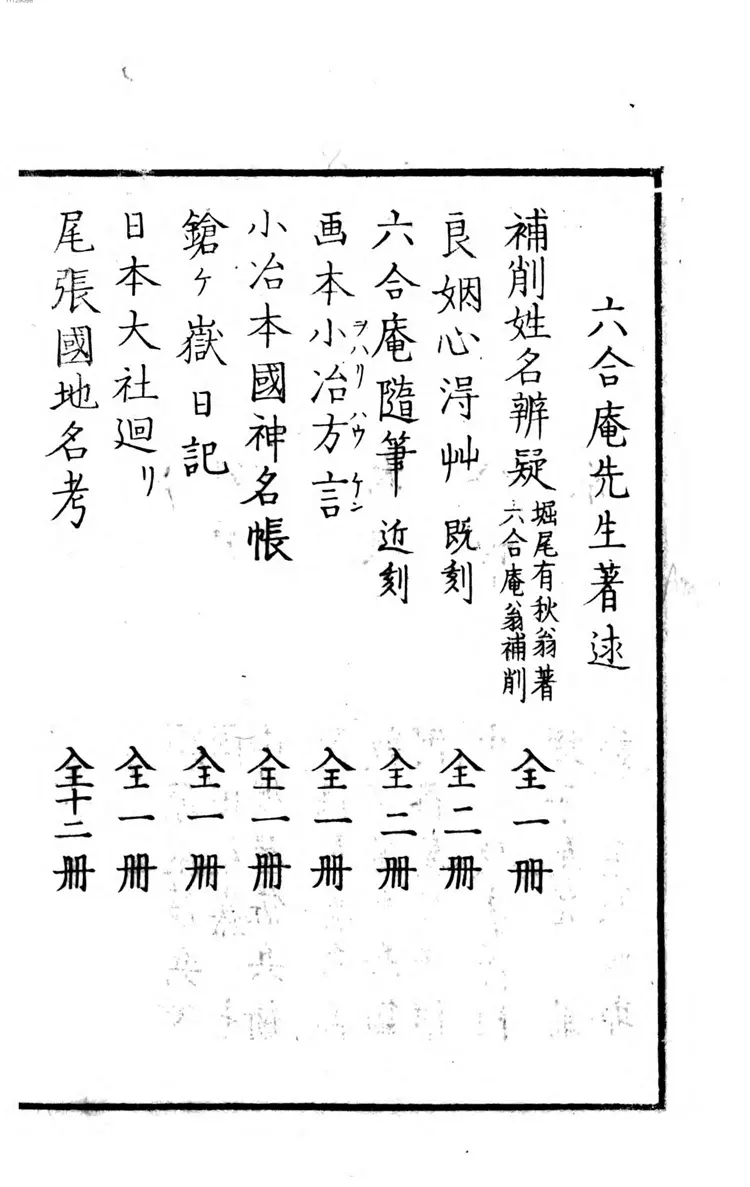 六合庵先生著述
補削姓名辨疑 堀尾有秋翁著 六合庵翁補削 全一冊
良姻心淂艸 既刻 全二冊
六合庵隨筆 近刻 全二冊
画本小冶方言 ヲハリ ハウ ケン 全一冊
小冶本國神名帳 全一冊
鎗ケ嶽日記 全一冊
日本大社廻リ 全一冊
尾張國地名考 全十二冊